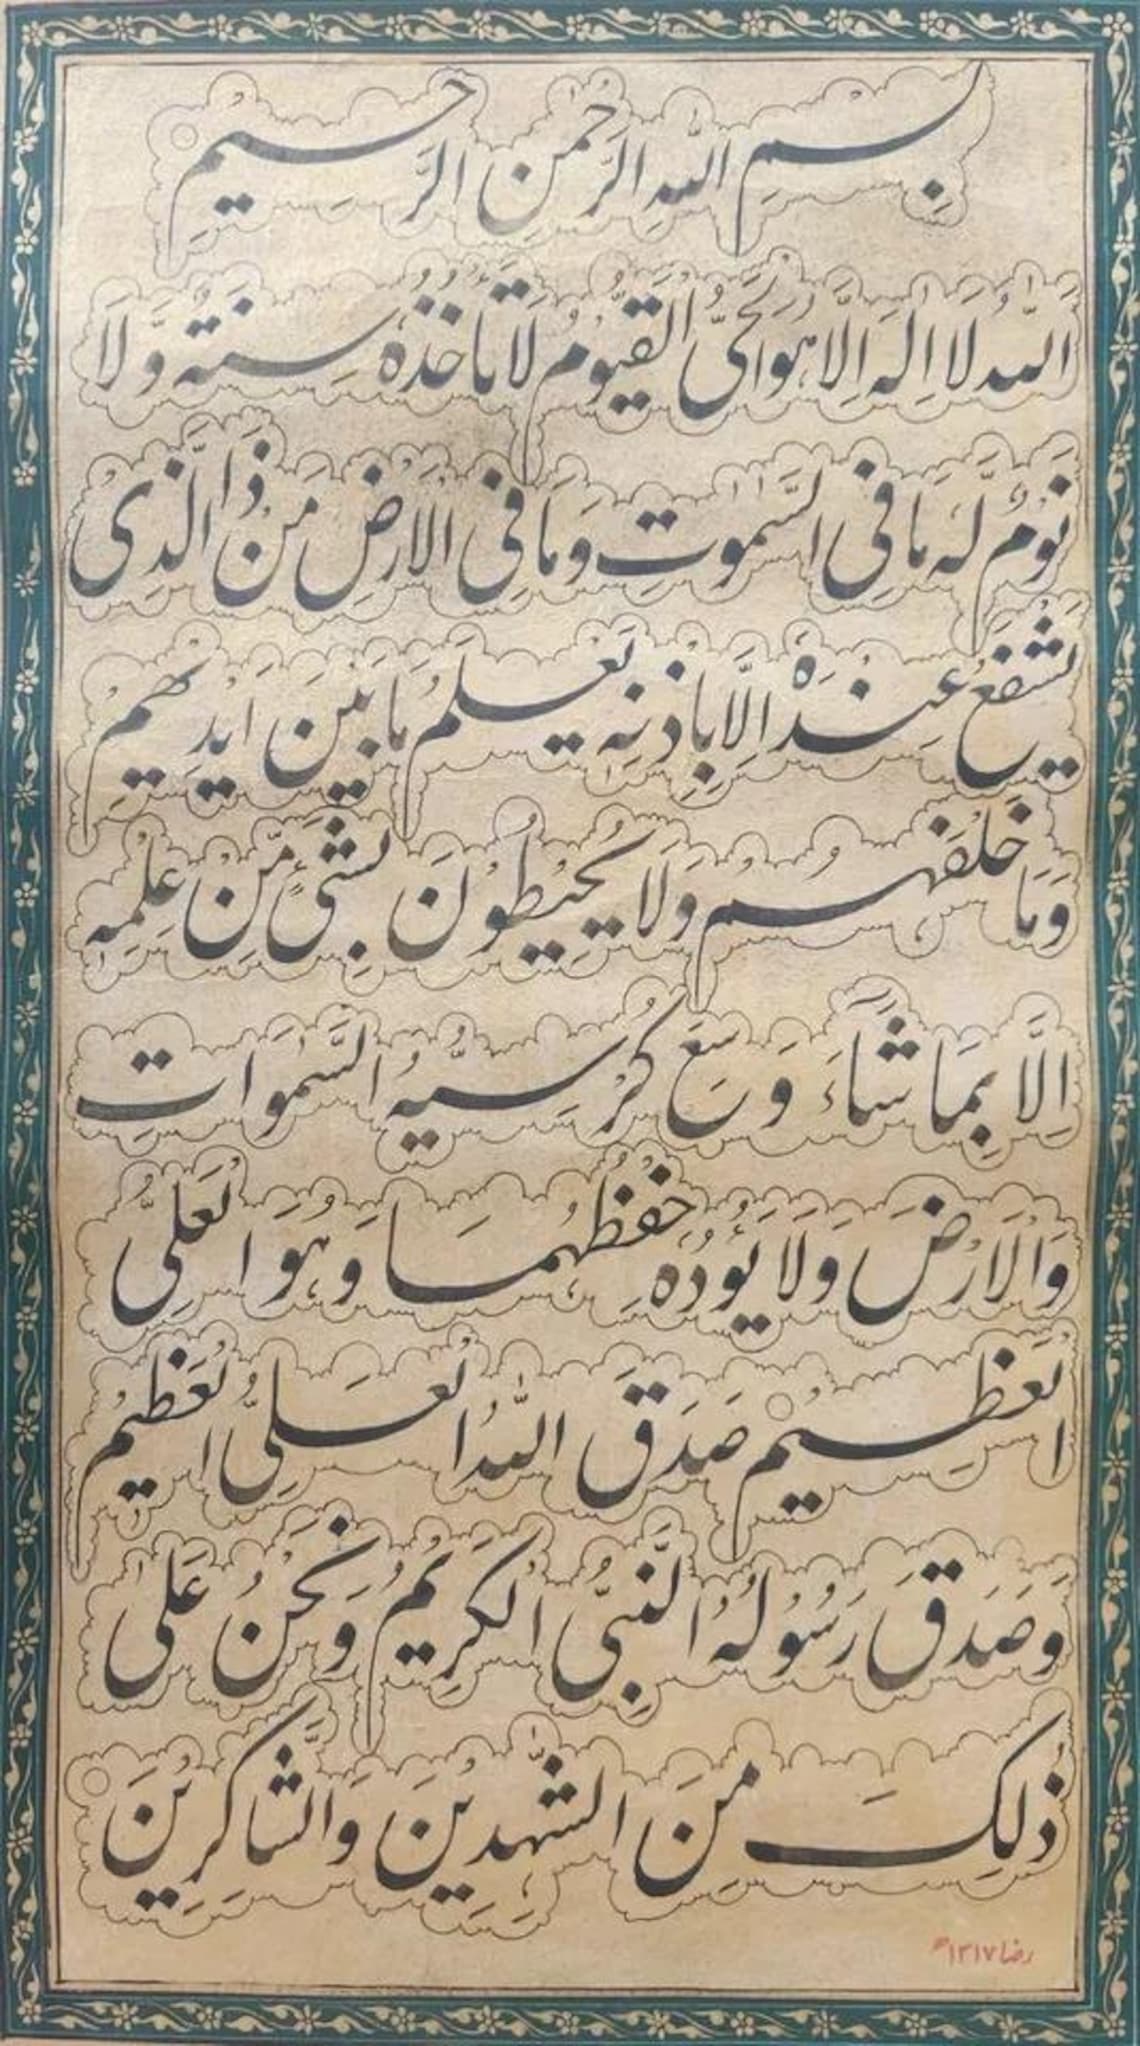 بِسْمِ اللّٰهِ الرَّحْمٰنِ الرَّحِيْمِ
اَللّٰهُ لَا اِلٰهَ اِلَّا هُوَ الْحَىُّ الْقَيُّوْمُ لَا تَاْخُذُهٗ سِنَةٌ وَّلَا
نَوْمٌ لَهٗ مَا فِى السَّمٰوٰتِ وَمَا فِى الْاَرْضِ مَنْ ذَا الَّذِىْ
يَشْفَعُ عِنْدَهٗ اِلَّا بِاِذْنِهٖ يَعْلَمُ مَا بَيْنَ اَيْدِيْهِمْ
وَمَا خَلْفَهُمْ وَلَا يُحِيْطُوْنَ بِشَىْءٍ مِّنْ عِلْمِهٖ
اِلَّا بِمَا شَآءَ وَسِعَ كُرْسِيُّهُ السَّمٰوَاتِ
وَالْاَرْضَ وَلَا يَؤُدُهٗ حِفْظُهُمَا وَهُوَ الْعَلِىُّ
الْعَظِيْمُ صَدَقَ اللّٰهُ الْعَلِىُّ الْعَظِيْمُ
وَصَدَقَ رَسُوْلُهُ النَّبِىُّ الْكَرِيْمُ وَنَحْنُ عَلٰى
ذٰلِكَ مِنَ الشّٰهِدِيْنَ وَالشَّاكِرِيْنَ
رضا ١٣١٧